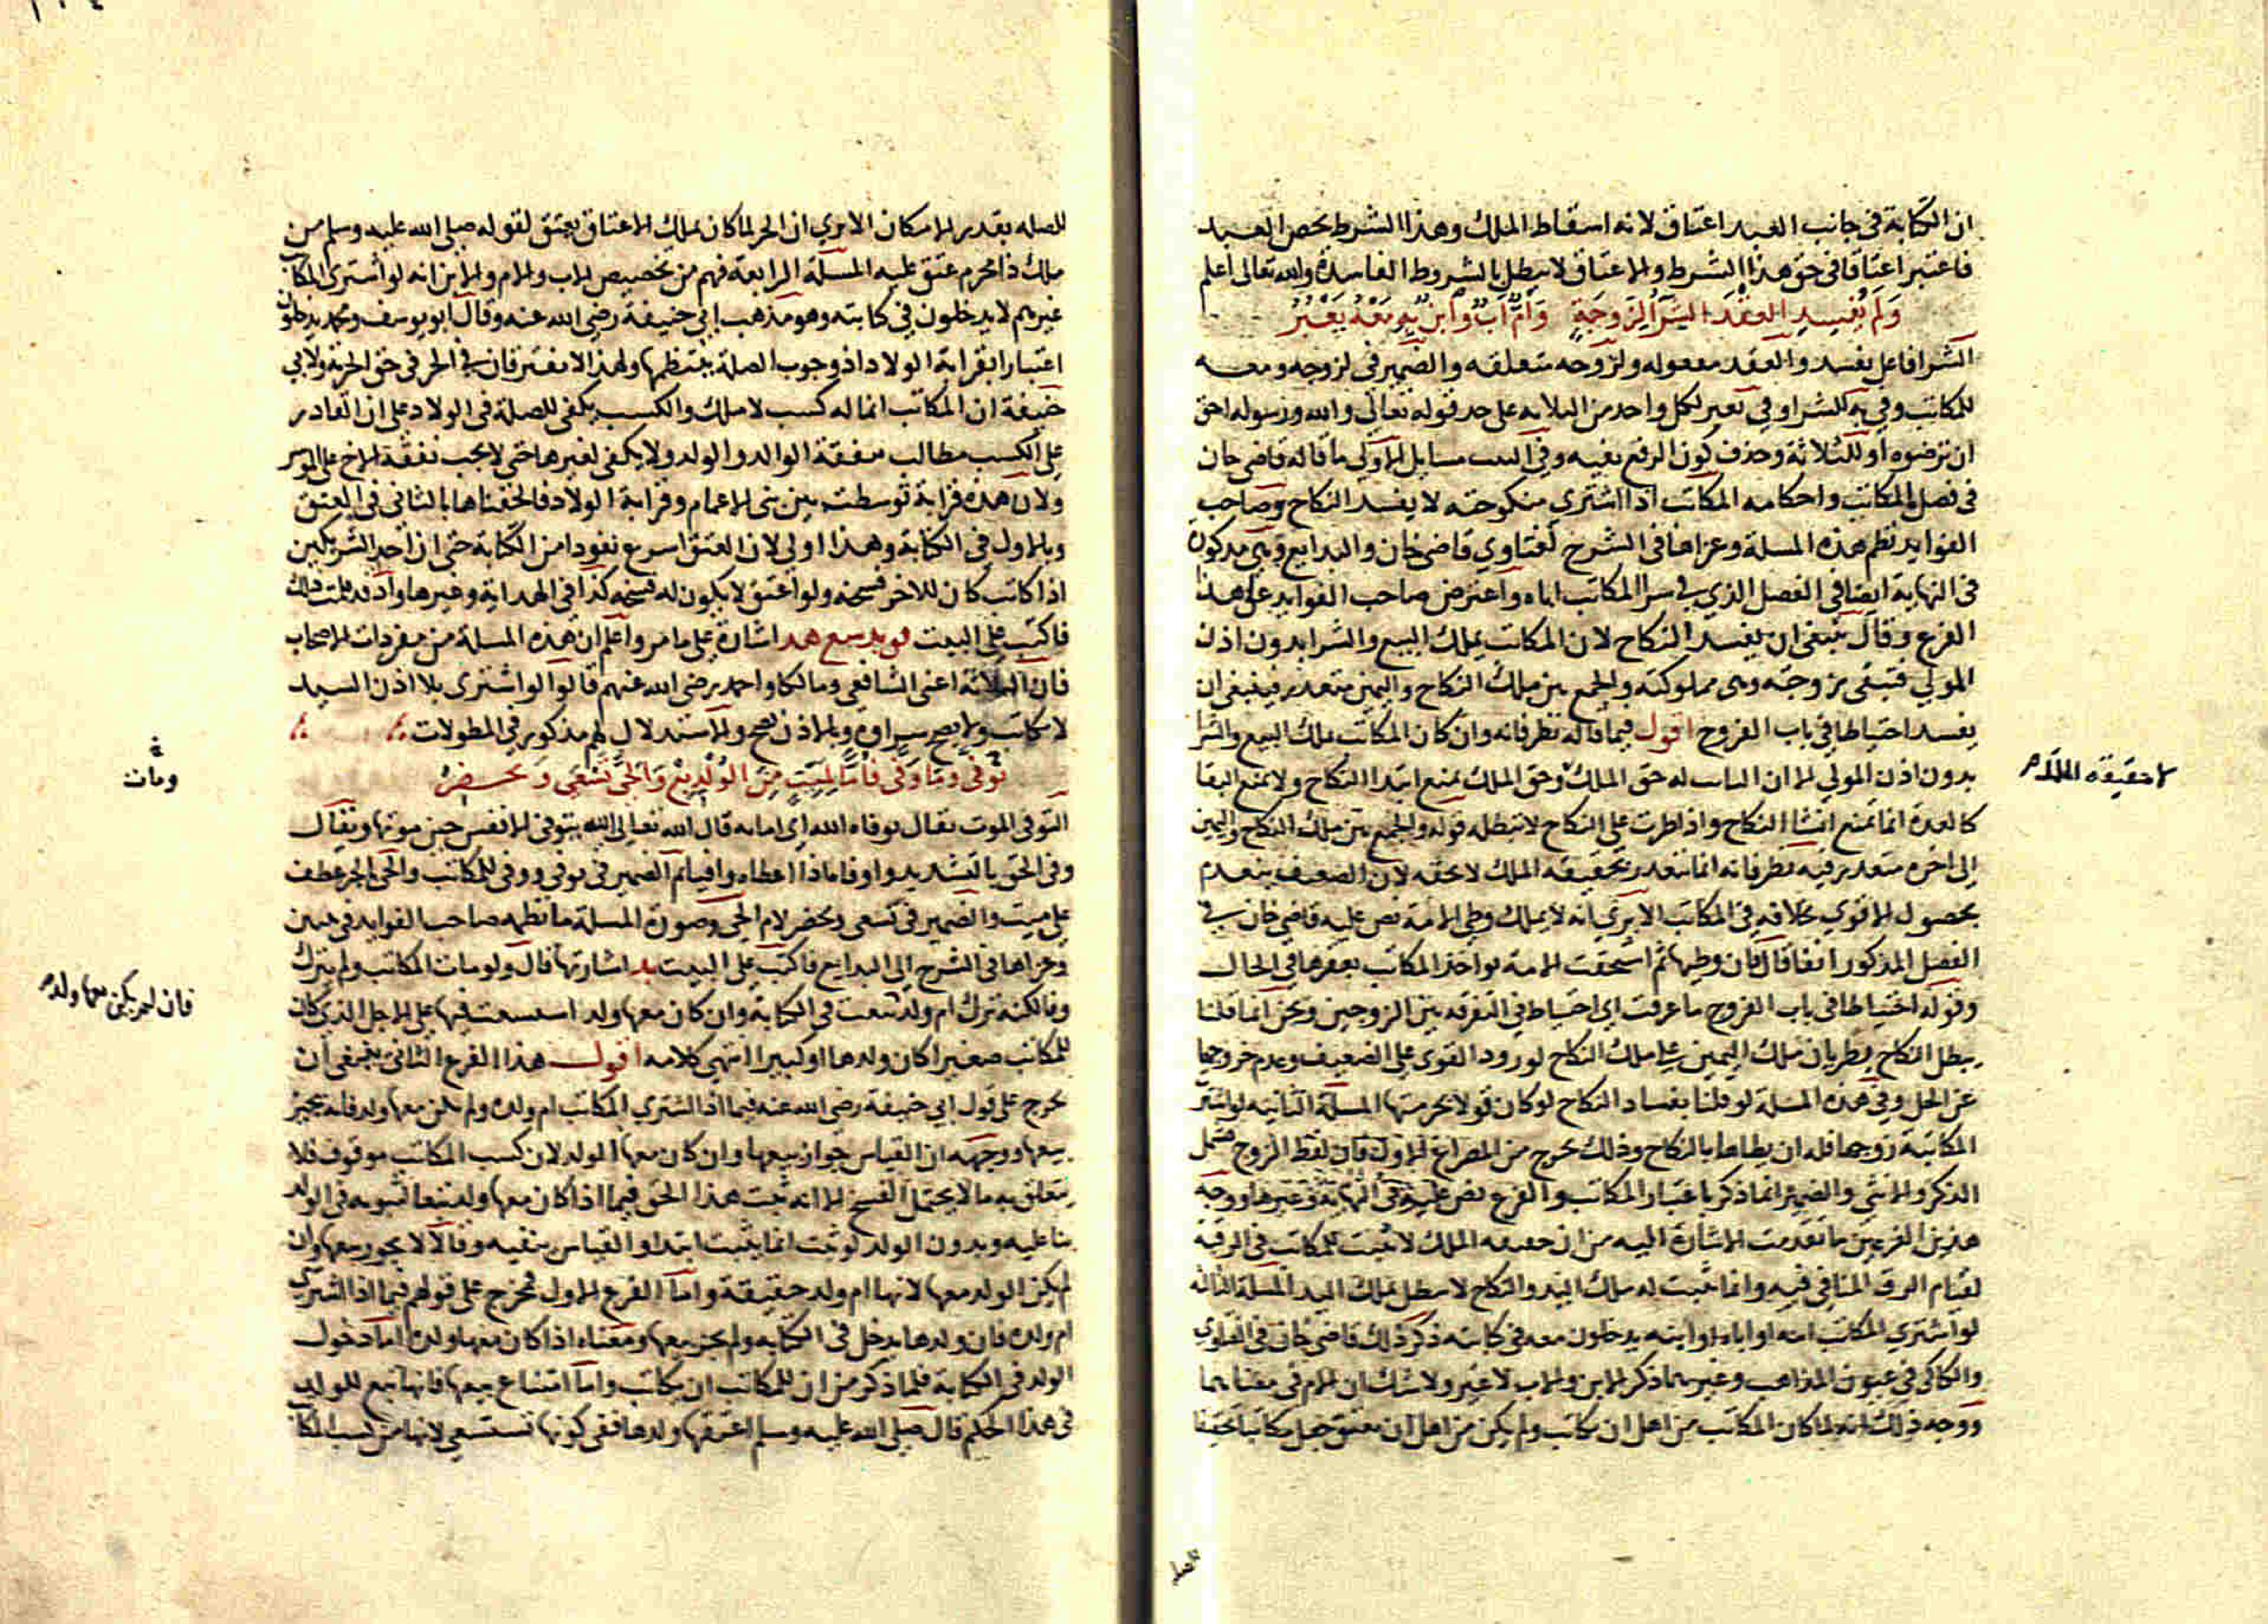 ان الكتابة في جانب العبد اعتاق لانه اسقاط الملك وهذا الشرط يخص العبد
فاعتبر اعتاقا في حق هذا الشرط والاعتاق لا يبطل بالشروط الفاسدة والله تعالى اعلم
ولم يفسد العقد الشرا لزوجة وام اب وابن به معه يعبر
الشرا فاعل يفسد والعقد مفعوله ولزوجه متعلقه والضمير في لزوجه ومعه
للمكاتب وفي به للشرا وفي يعبر لكل واحد من الثلاثه على حد قوله تعالى والله ورسوله احق
ان ترضوه او للثلاثة وحذف كون الرفع بفيه وفي البيت مسايل الاولى ما قاله قاضي خان
في فصل المكاتب واحكامه المكاتب اذا اشترى منكوحته لا يفسد النكاح وصاحب
الفوايد نظم هذه المسلة وعزاها في الشرح لفتاوي قاضي خان والبدايع وهي مذكورة
في النهاية ايضا في الفصل الذي في شرا المكاتب اباه واعترض صاحب الفوايد على هذا
الفرع وقال ينبغي ان يفسد النكاح لان المكاتب يملك البيع والشرا بدون اذن
المولي فتبقى زوجته وهي مملوكته والجمع بين ملك النكاح واليمين متعذر فينبغي ان
يفسد احتياطا في باب الفروج اقول فيما قاله نظر فانه وان كان المكاتب يملك البيع والشرا
بدون اذن المولي الا ان الثابت له حق الملك وحق الملك يمنع ابتدا النكاح ولا يمنع البقا
لا حقيقة الملك
كالعدة انما تمنع انشا النكاح واذا طرت على النكاح لا تبطله قوله والجمع بين ملك النكاح واليمين
الى اخره متعذر فيه نظر فانه انما يتعذر بحقيقة الملك لا بحقه لان الضعيف ينعدم
بحصول الاقوي بخلافه في المكاتب الا يرى انه لا يملك وطي الامة نص عليه قاضي خان في
الفصل المذكور انفا قال فان وطيها ثم استحقت الامة يواخذ المكاتب بعقرها في الحال
وقوله احتياطا في باب الفروج ما عرفت اي احتياط في التفرقة بين الزوجين ونحن انما قلنا
يبطل النكاح بطريان ملك اليمين على ملك النكاح لورود القوى على الضعيف وعدم خروجها
عن الحل وفي هذه المسلة لو قلنا بفساد النكاح لو كان قولا بحرمتها المسلة الثانيه لو اشتر
المكاتبة زوجها فله ان يطاها بالنكاح وذلك يخرج من المصراع الاول فان لفظ الزوج يشمل
الذكر والانثى والضمير انما ذكر باعتبار المكاتب والفرع نص عليه في النهاية وغيرها ووجه
هذين الفرعين ما تقدمت الاشارة اليه من ان حقيقه الملك لا تثبت للمكاتب في الرقبة
لقيام الرق المنافي فيه وانما يثبت له ملك اليد والنكاح لا يبطل بملك اليد المسلة الثالثه
لو اشترى المكاتب امه او اباه او ابنه يدخلون معه في كتابته ذكر ذلك قاضي خان في الفتاوي
والكاكي في عيون المذاهب وغيرهما ذكر الابن والاب لا غير ولا شك ان الام في معناهما
ووجه ذلك انه لما كان المكاتب من اهل ان يكاتب ولم يكن من اهل ان يعتق جعل مكاتبا تحقيقا
للصله
للصله بقدر الامكان الا يرى ان الحر لما كان يملك الاعتاق يعتق لقوله صلى الله عليه وسلم من
ملك ذا محرم عتق عليه المسلة الرابعة فهم من تخصيص الاب والام والابن انه لو اشترى المكاتب
غيرهم لا يدخلون في كتابته وهو مذهب ابي حنيفة رضي الله عنه وقال ابو يوسف ومحمد يدخلون
اعتبارا بقرابة الولاد اذ وجوب الصلة ينتظمها ولهذا لا يفترقان في الحر في حق الحرية ولابي
حنيفة ان المكاتب انما له كسب لا ملك والكسب يكفي للصلة في الولاد على ان القادر
على الكسب مطالب بنفقة الوالد والولد ولا يكفي لغيرها حتى لا يجب نفقة الاخ على الموسر
ولان هذه قرابة توسطت بين بني الاعمام وقرابة الولاد فالحقناها بالثاني في العتق
وبالاول في الكتابة وهذا اولى لان العتق اسرع نفودا من الكتابة حتى ان احد الشريكين
اذا كاتب كان للاخر فسخه ولو اعتق لا يكون له فسخه كذا في الهداية وغيرها
فاكتب على البيت اشارة على ما مر واعلم ان هذه المسلة من مفردات الاصحاب
فان الثلاثة اعني الشافعي ومالكا واحمد رضي الله عنهم قالوا لو اشترى بلا اذن السيد
لا يكاتب ولا يصح شراوه وبالاذن يصح والاستدلال لهم مذكور في المطولات
توفى وما وفى فاما لميت من الولد بع والحي تسعى ويحضر
ومات
التوفي الموت يقال توفاه الله اي اماته قال الله تعالى الله يتوفى الانفس حين موتها ويقال
وفى الحق بالتشديد واوفاه اذا اعطاه وافيا ثم الضمير في توفى ووفى للمكاتب والحي بالجر عطف
على ميت والضمير في تسعى ويحضر لام الحي وصورة المسلة ما نظمه صاحب الفوايد في بيتين
وعزاها في الشرح الى البدايع فاكتب على البيت بد اشارتها قال ولو مات المكاتب ولم يترك
وفا لكنه ترك ام ولد بيعت في الكتابة وان كان معها ولد استسعت فيها على الاجل الذي كان
فان لم يكن معها ولد
للمكاتب صغيرا كان ولدها او كبيرا انتهى كلامه اقول هذا الفرع الثاني ينبغي ان
يخرج على قول ابي حنيفة رضي الله عنه فيما اذا اشتري المكاتب ام ولده ولم يكن معها ولد فانه يجيز
بيعها ووجهه ان القياس جواز بيعها وان كان معها الولد لان كسب المكاتب موقوف فلا
يتعلق به ما لا يحتمل الفسخ الا انه ثبت هذا الحق فيما اذا كان معها ولد تبعا لثبوته في الولد
بنا عليه وبدون الولد لو ثبت انما يثبت ابتدا والقياس ينفيه وقالا لا يجوز بيعها وان
لم يكن الولد معها لانها ام ولد حقيقة واما الفرع الاول فخرج على قولهم فيما اذا اشترى
ام ولده فان ولدها يدخل في الكتابه ولم يجز بيعها ومعناه اذا كان معها ولده اما دخول
الولد في الكتابة فلما ذكر من ان للمكاتب ان يكاتب واما امتناع بيعها فانها تبع للولد
في هذا الحكم قال صلى الله عليه وسلم اعتقها ولدها ففي كونها تستسعي لانها من كسب المكا